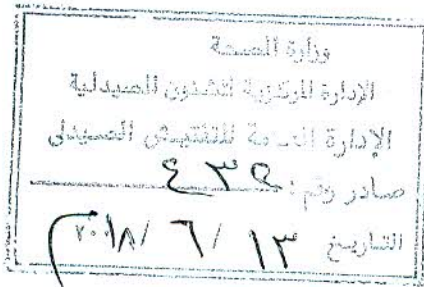 وزارة الصحة
الإدارة المركزية للشئون الصيدلية
الإدارة العامة للتفتيش الصيدلى
صادر رقم : ٤٣٩
التاريخ ١٣ / ٦ / ٢٠١٨